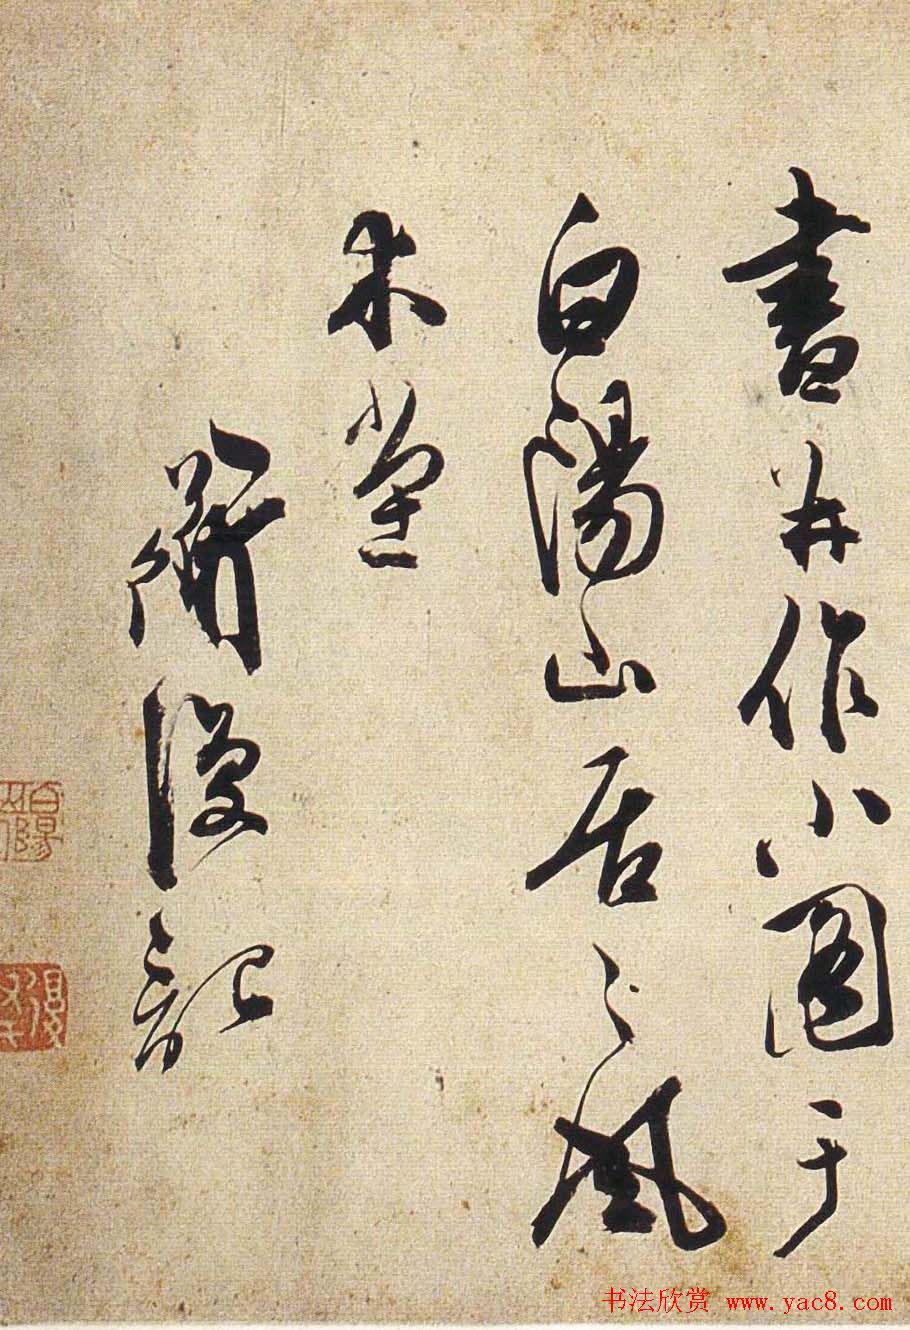 書并作小圖于
白陽山居之風
木堂
道復記
白陽山人
书法欣赏 www.yac8.com